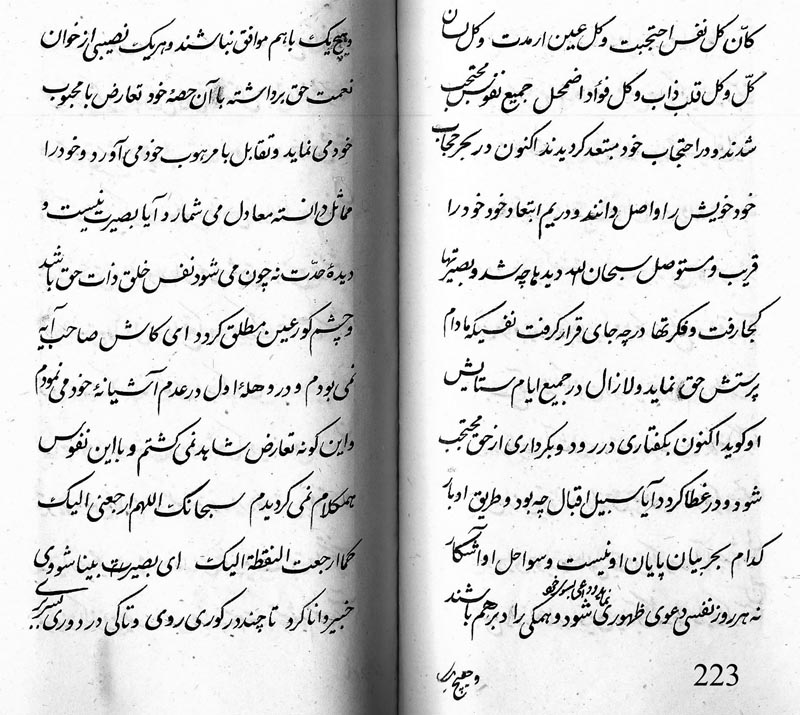 کان کل نفس احتجبت وکل عین ارمدت وکل
کل وکل قلب ذاب وکل فؤاد اضمحل جمیع نفوس محتجب
شدند و در احتجاب خود مبتعد کردیدند اکنون در بحر حجاب
خود خویش را واصل دانند و در یم ابتعاد خود خود را
قریب و مستوصل سبحان الله دیدها چه شد و بصیرتها
کجا رفت و فکرتها در چه جای قرار کرفت نفسیکه مادام
پرستش حق نماید و لازال در جمیع ایام ستایش
او کوید اکنون بکفتاری در رود و بکرداری از حق محتجب
شود و در غطا کردد آیا سبیل اقبال چه بود و طریق ادبار
کدام بحر بیان پایان او نیست و سواحل او آشکار
نه هر روز نفسی دعوی ظهوری شود و همکی را درهم باشند
223
و هیچ یک
و هیچ یک باهم موافق نباشند و هریک نصیبی از خوان
نعمت حق برداشته با آن حصهٔ خود تعارض با محبوب
خود می نماید و تقابل با مرهوب خود می آورد و خود را
مماثل دانسته معادل می شمارد آیا بصیرت نیست و
دیدهٔ حدّت نه چون می شود نفس خلق ذات حق باشد
و چشم کور عین مطلق کردد ای کاش صاحب آیه
نمی بودم و در وهلهٔ اول در عدم آشیانهٔ خود می نمودم
و این کونه تعارض شاهد نمی کشتم و با این نفوس
همکلام نمی کردیدم سبحانک اللهم ارجعنی الیک
کما ارجعت النقطة الیک ای بصیرت بینا شو وی
خبیر دانا کرد تا چند در کوری روی و تا کی در دوری بسر بری